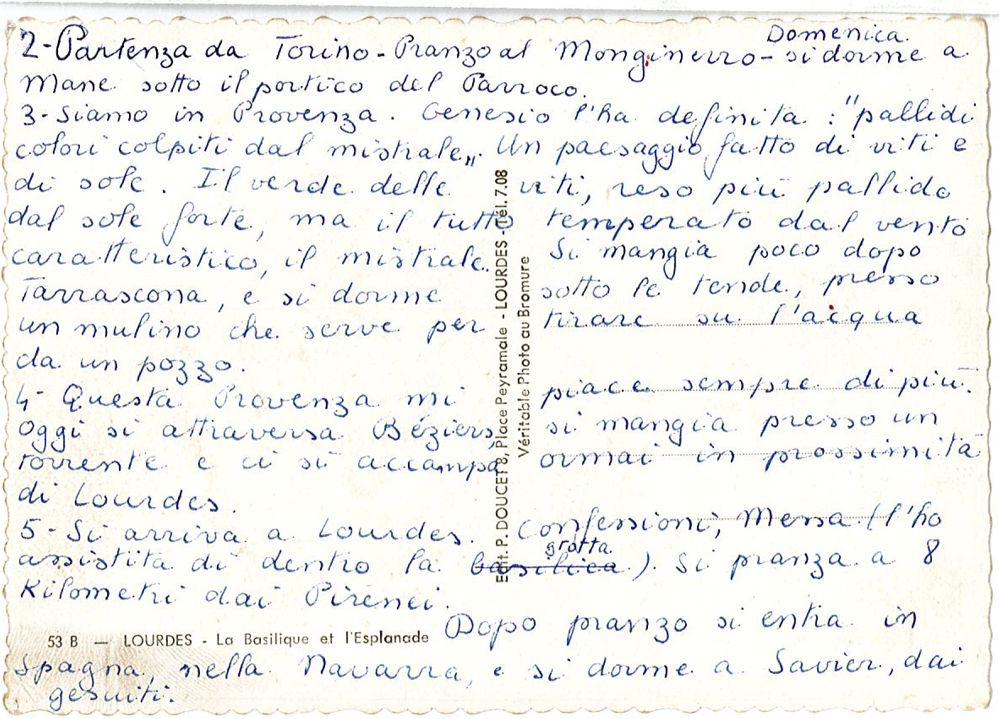 Domenica.
2-Partenza da Torino-Pranzo al Monginerro-si dorme a
Mane sotto il portico del Parroco.
3-Siamo in Provenza. Genesio l'ha definita: "pallidi
colori colpiti dal mistrale„. Un paesaggio fatto di viti e
di sole. Il verde delle viti, reso più pallido
dal sole forte, ma il tutto temperato dal vento
caratteristico, il mistrale. Si mangia poco dopo
Tarrascona, e si dorme sotto le tende, presso
un mulino che serve per tirare su l'acqua
da un pozzo.
4- Questa Provenza mi piace sempre di più.
Oggi si attraversa Béziers, si mangia presso un
torrente e ci si accampa ormai in prossimità
di Lourdes.
5-Si arriva a Lourdes. Confessioni, Messa (l'ho
assistita di dentro la basilica grotta). Si pranza a 8
Kilometri dai Pirenei.
Dopo pranzo si entra in
Spagna, nella Navarra, e si dorme a Savier, dai
gesuiti.
53 B — LOURDES - La Basilique et l'Esplanade
Edit. P. DOUCET 8, Place Peyramale - LOURDES - Tél. 7.08
Véritable Photo au Bromure